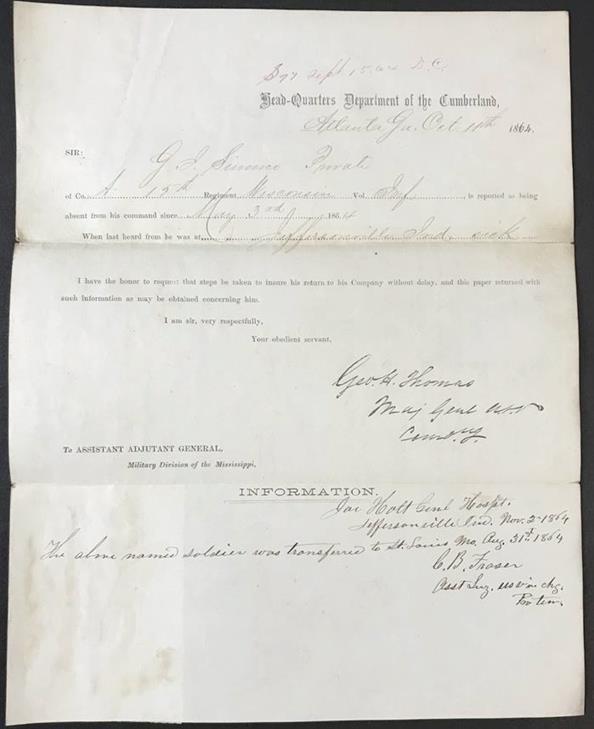 Sept 15. 64 D.C.
Head-Quarters Department of the Cumberland,
Atlanta Ga. Oct 1864.
SIR:
G. Private
of Co. A 15th Regiment Wisconsin Vol. Inf. , is reported as being
absent from his command since May 3rd 1864
When last heard from he was at Jeffersonville Ind. sick
I have the honor to request that steps be taken to insure his return to his Company without delay, and this paper returned with
such Information as may be obtained concerning him.
I am sir, very respectfully,
Your obedient servant,
Geo. H. Thomas
Maj Genl
Comdg.
To ASSISTANT ADJUTANT GENERAL,
Military Division of the Mississippi,
INFORMATION.
Joe Holt Genl Hospt.
Jeffersonville Ind. Nov. 2-1864
The above named soldier was transferred to St. Louis Mo. Aug. 31st 1864
C. B. Fraser
Asst Surg. in chg.
Pro tem.